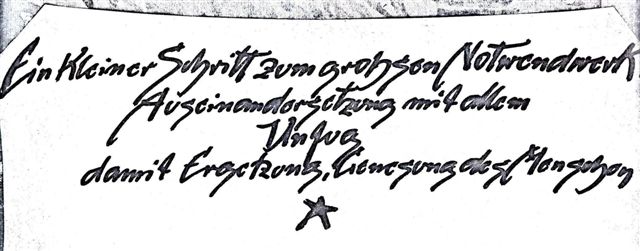 Ein Kleiner Schritt zum grohsen Notwendwerk
Auseinandersetzung mit allem
Unfug
damit Ergetzung, Genesung des Menschen